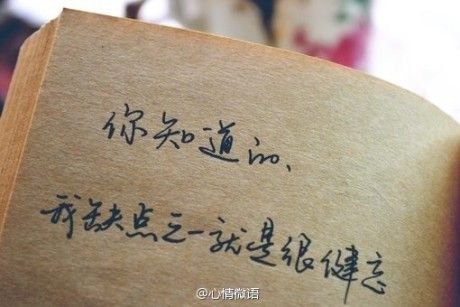 你知道的、
我缺点之一就是很健忘
@心情微语